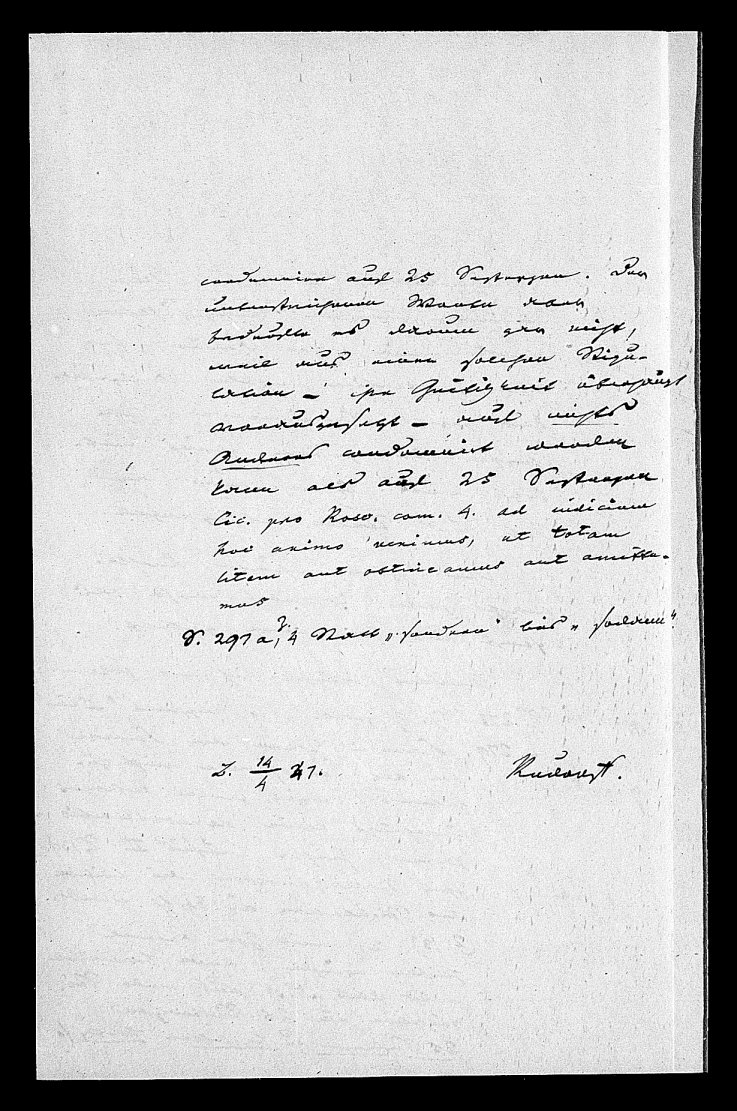 condemniren auf 25 Sestertien. Der
unterstrichenen Worte aber
bedürfte es darum gar nicht,
weil aus einer solchen Stipu-
lation – ihre Gültigkeit überhaupt
vorausgesetzt – auf nichts
Anderes condemnirt werden
kann als auf 25 Sestertien
Cic. pro Rosc. com. 4. ad iudicium
hoc animo venimus, ut totam
litem aut obtineamus aut amitta-
mus
S. 297 a, Z. 4 Statt „sondern“ lies „sodann“.
L. 14/4 47.
Rudorff.